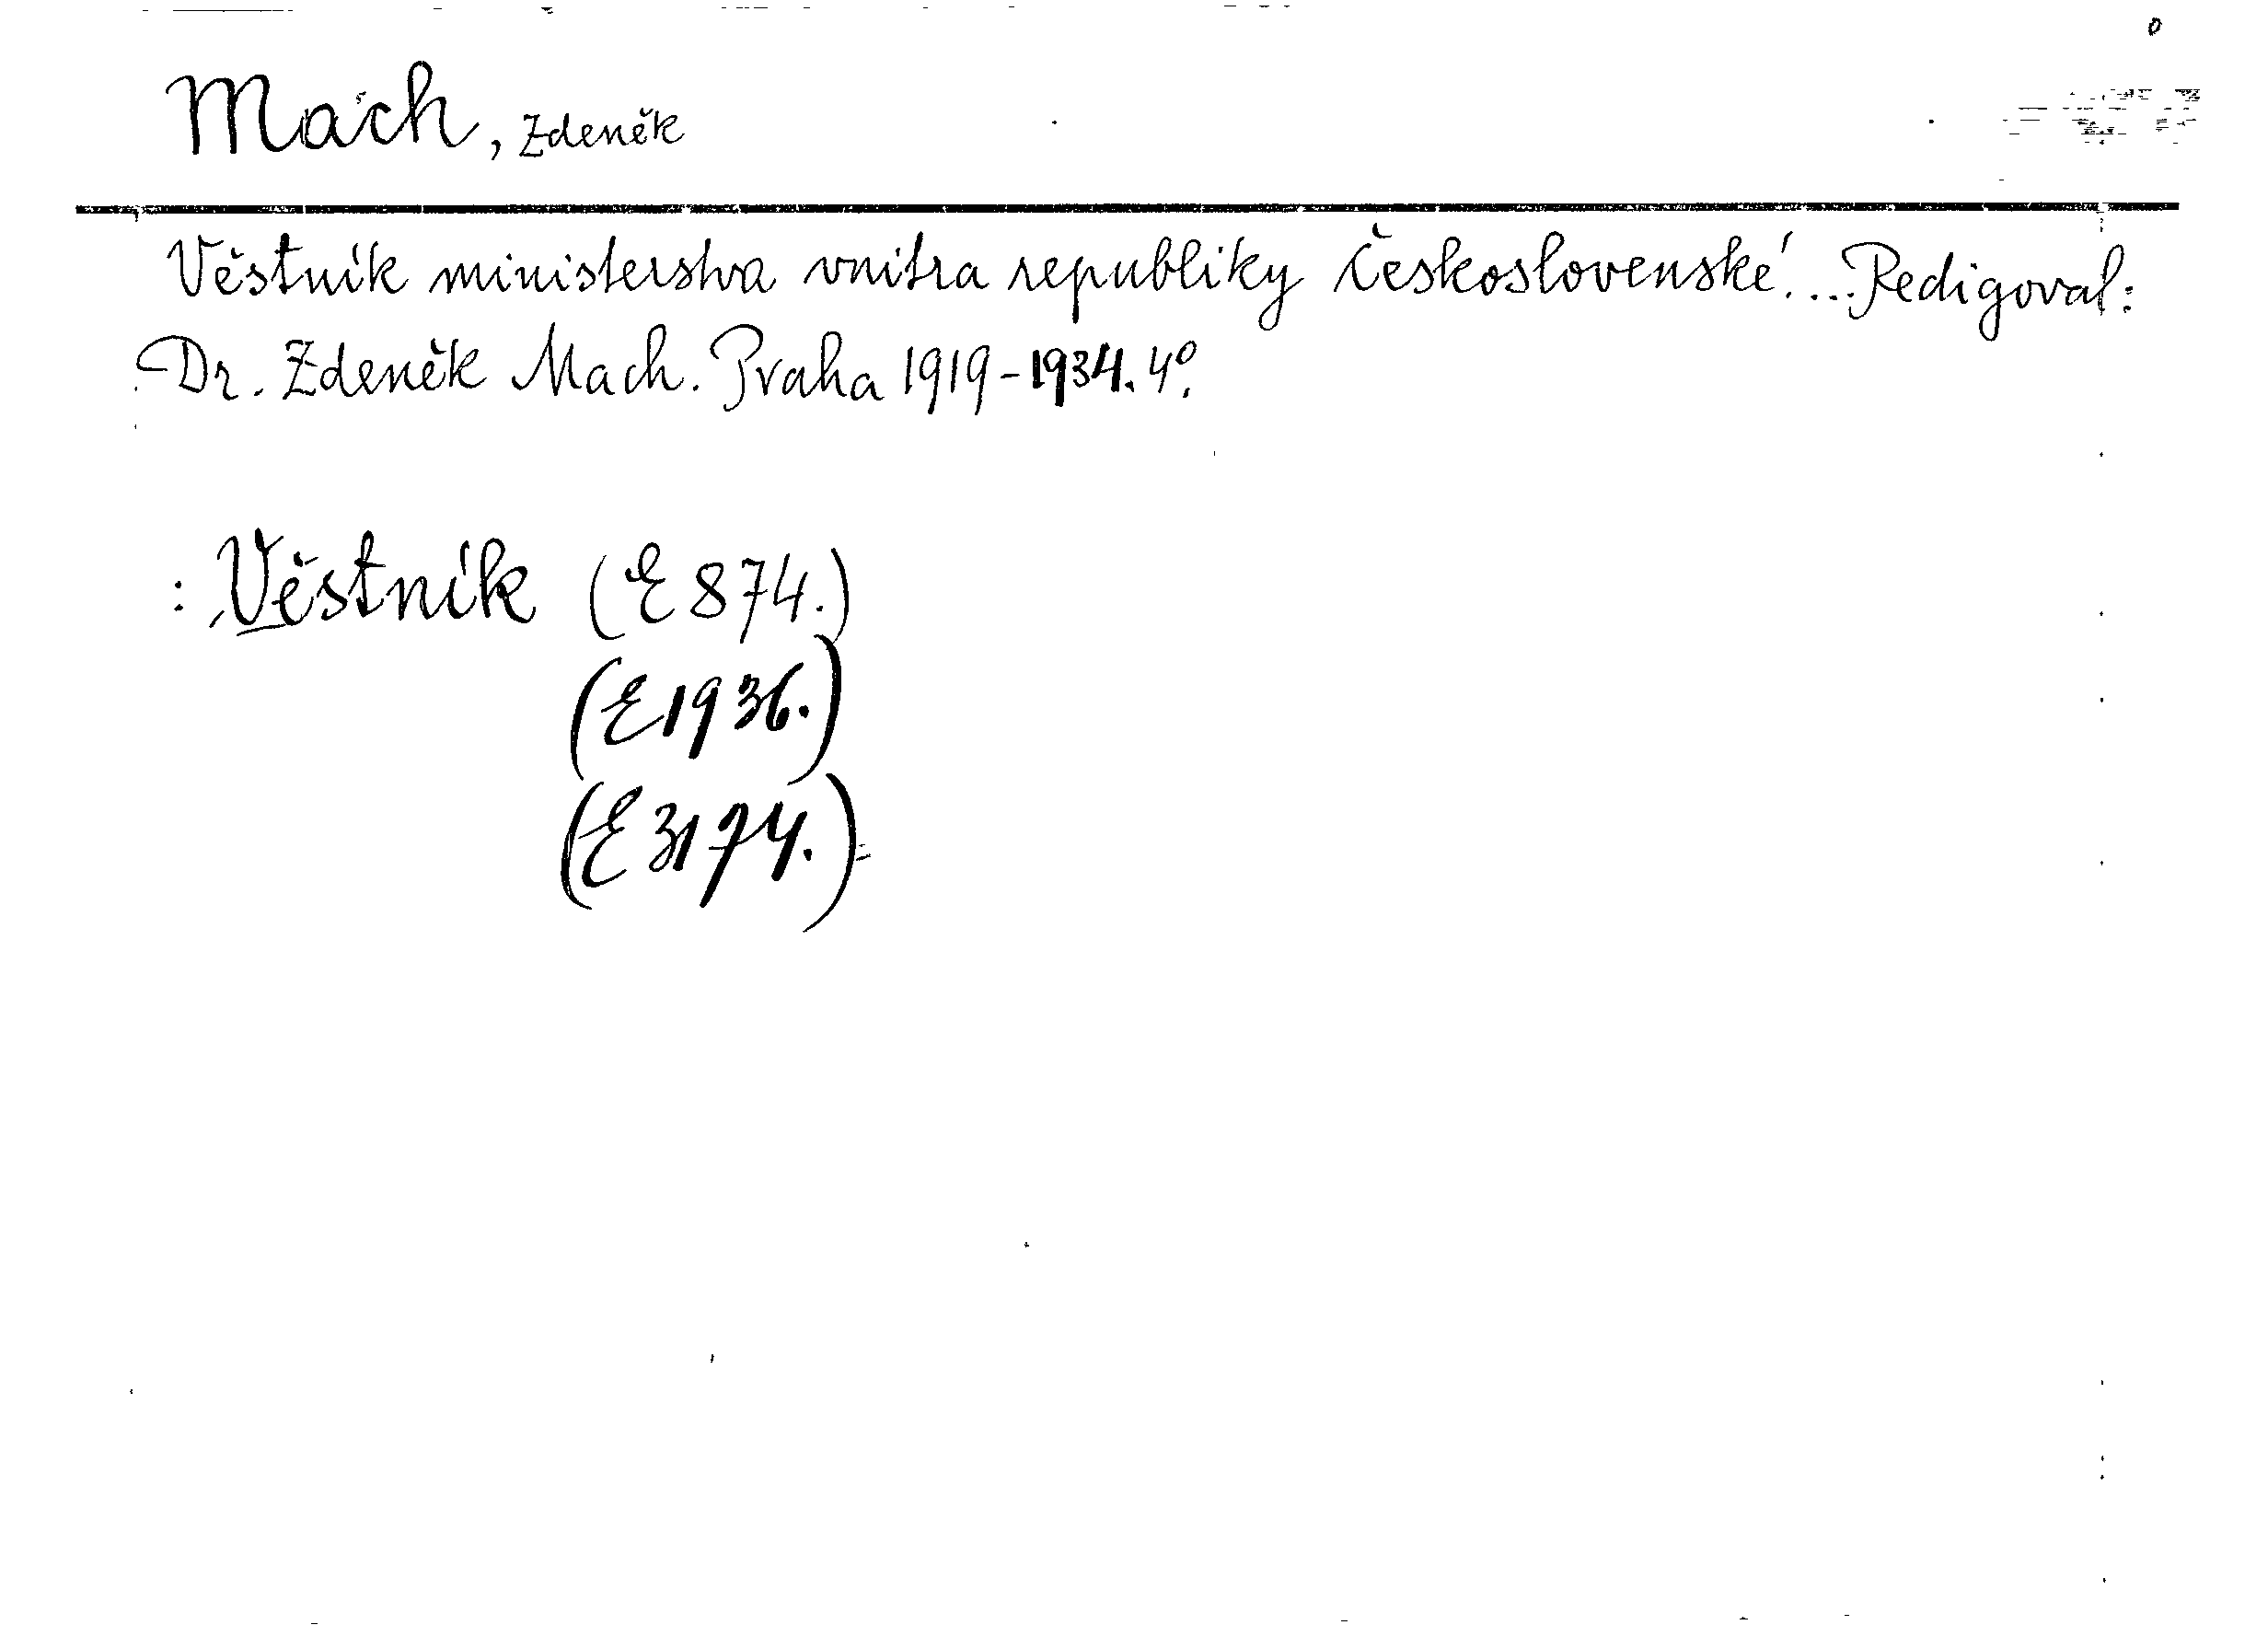 Mach, Zdeněk
Věstník ministerstva vnitra republiky Československé. ... Redigoval:
Dr. Zdeněk Mach. Praha 1919-1934. 4º.
: Věstník (E 874.)
(E 1936.)
(E 3174.)